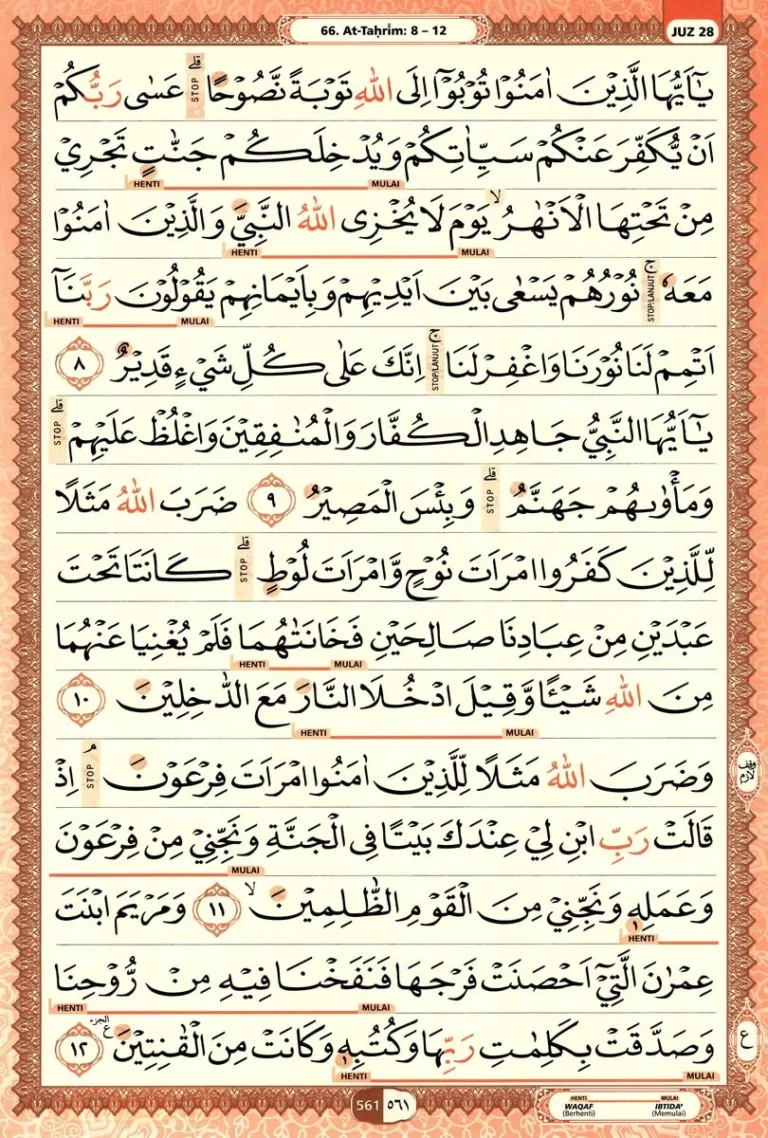 66. At-Taḥrīm: 8 – 12
JUZ 28
يٰٓاَيُّهَا الَّذِيْنَ اٰمَنُوْا تُوْبُوْٓا اِلَى اللّٰهِ تَوْبَةً نَّصُوْحًا ۗ STOP عَسٰى رَبُّكُمْ
اَنْ يُّكَفِّرَ عَنْكُمْ سَيِّاٰتِكُمْ وَيُدْخِلَكُمْ جَنّٰتٍ تَجْرِيْ
MULAI HENTI
مِنْ تَحْتِهَا الْاَنْهٰرُۙ يَوْمَ لَا يُخْزِى اللّٰهُ النَّبِيَّ وَالَّذِيْنَ اٰمَنُوْا
MULAI HENTI
مَعَهٗ ۚ STOP/LANJUT نُوْرُهُمْ يَسْعٰى بَيْنَ اَيْدِيْهِمْ وَبِاَيْمَانِهِمْ يَقُوْلُوْنَ رَبَّنَآ
MULAI HENTI
اَتْمِمْ لَنَا نُوْرَنَا وَاغْفِرْ لَنَا ۚ STOP/LANJUT اِنَّكَ عَلٰى كُلِّ شَيْءٍ قَدِيْرٌ ٨
يٰٓاَيُّهَا النَّبِيُّ جَاهِدِ الْكُفَّارَ وَالْمُنٰفِقِيْنَ وَاغْلُظْ عَلَيْهِمْ ۗ STOP
وَمَأْوٰىهُمْ جَهَنَّمُ ۗ STOP وَبِئْسَ الْمَصِيْرُ ٩ ضَرَبَ اللّٰهُ مَثَلًا
لِّلَّذِيْنَ كَفَرُوا امْرَاَتَ نُوْحٍ وَّامْرَاَتَ لُوْطٍ ۗ STOP كَانَتَا تَحْتَ
عَبْدَيْنِ مِنْ عِبَادِنَا صَالِحَيْنِ فَخَانَتٰهُمَا فَلَمْ يُغْنِيَا عَنْهُمَا
MULAI HENTI
مِنَ اللّٰهِ شَيْـًٔا وَّقِيْلَ ادْخُلَا النَّارَ مَعَ الدّٰخِلِيْنَ ١٠
MULAI HENTI
وَضَرَبَ اللّٰهُ مَثَلًا لِّلَّذِيْنَ اٰمَنُوا امْرَاَتَ فِرْعَوْنَ ۘ STOP اِذْ
وقف لازم
قَالَتْ رَبِّ ابْنِ لِيْ عِنْدَكَ بَيْتًا فِى الْجَنَّةِ وَنَجِّنِيْ مِنْ فِرْعَوْنَ
MULAI
وَعَمَلِهٖ وَنَجِّنِيْ مِنَ الْقَوْمِ الظّٰلِمِيْنَۙ ١١ وَمَرْيَمَ ابْنَتَ
HENTI
عِمْرٰنَ الَّتِيْٓ اَحْصَنَتْ فَرْجَهَا فَنَفَخْنَا فِيْهِ مِنْ رُّوْحِنَا
MULAI HENTI
وَصَدَّقَتْ بِكَلِمٰتِ رَبِّهَا وَكُتُبِهٖ وَكَانَتْ مِنَ الْقٰنِتِيْنَ ع الجزء ١٢
ع
MULAI HENTI
561 ٥٦١
HENTI MULAI
WAQAF IBTIDA'
(Berhenti) (Memulai)